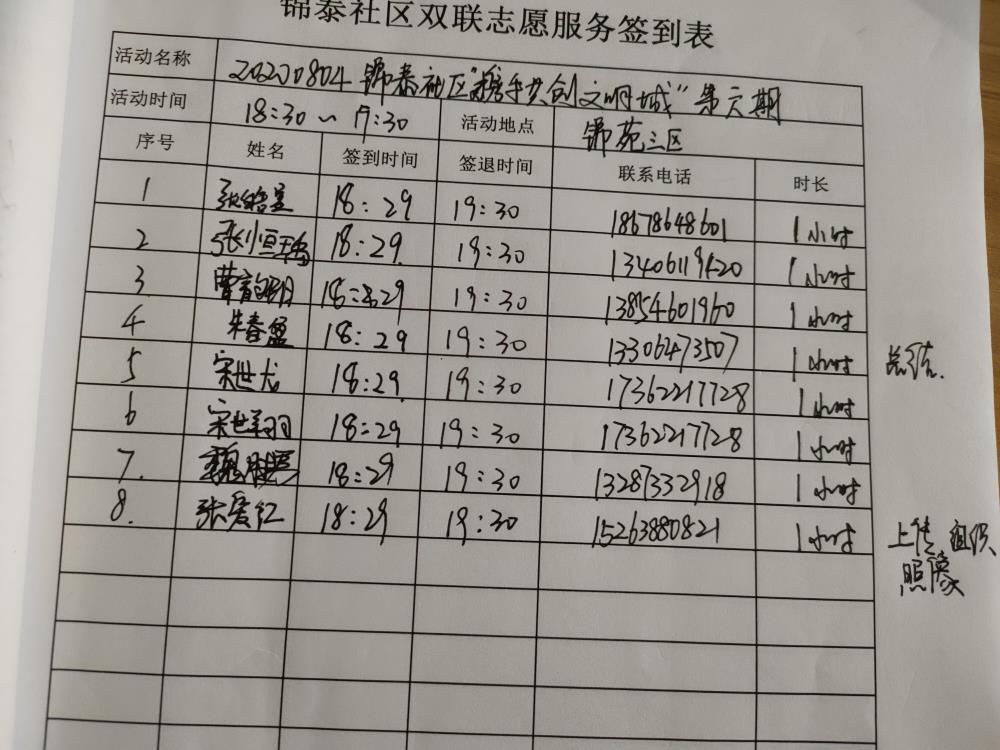 锦泰社区双联志愿服务签到表
活动名称 20200804 锦泰社区“携手共创文明城”第六期
活动时间 18:30~19:30 活动地点 锦苑三区
序号 姓名 签到时间 签退时间 联系电话 时长
1 张皓星 18:29 19:30 18678648601 1小时
2 张恒 18:29 19:30 1340611 20 1小时
3 曹韵明 18:29 19:30 13854601960 1小时
4 朱春盈 18:29 19:30 13306473507 1小时 总结.
5 宋世龙 18:29 19:30 17362217728 1小时
6 宋世翔 18:29 19:30 17362217728 1小时
7. 魏 18:29 19:30 13287332918 1小时
8. 张爱红 18:29 19:30 15263880821 1小时 上传 组织
照像